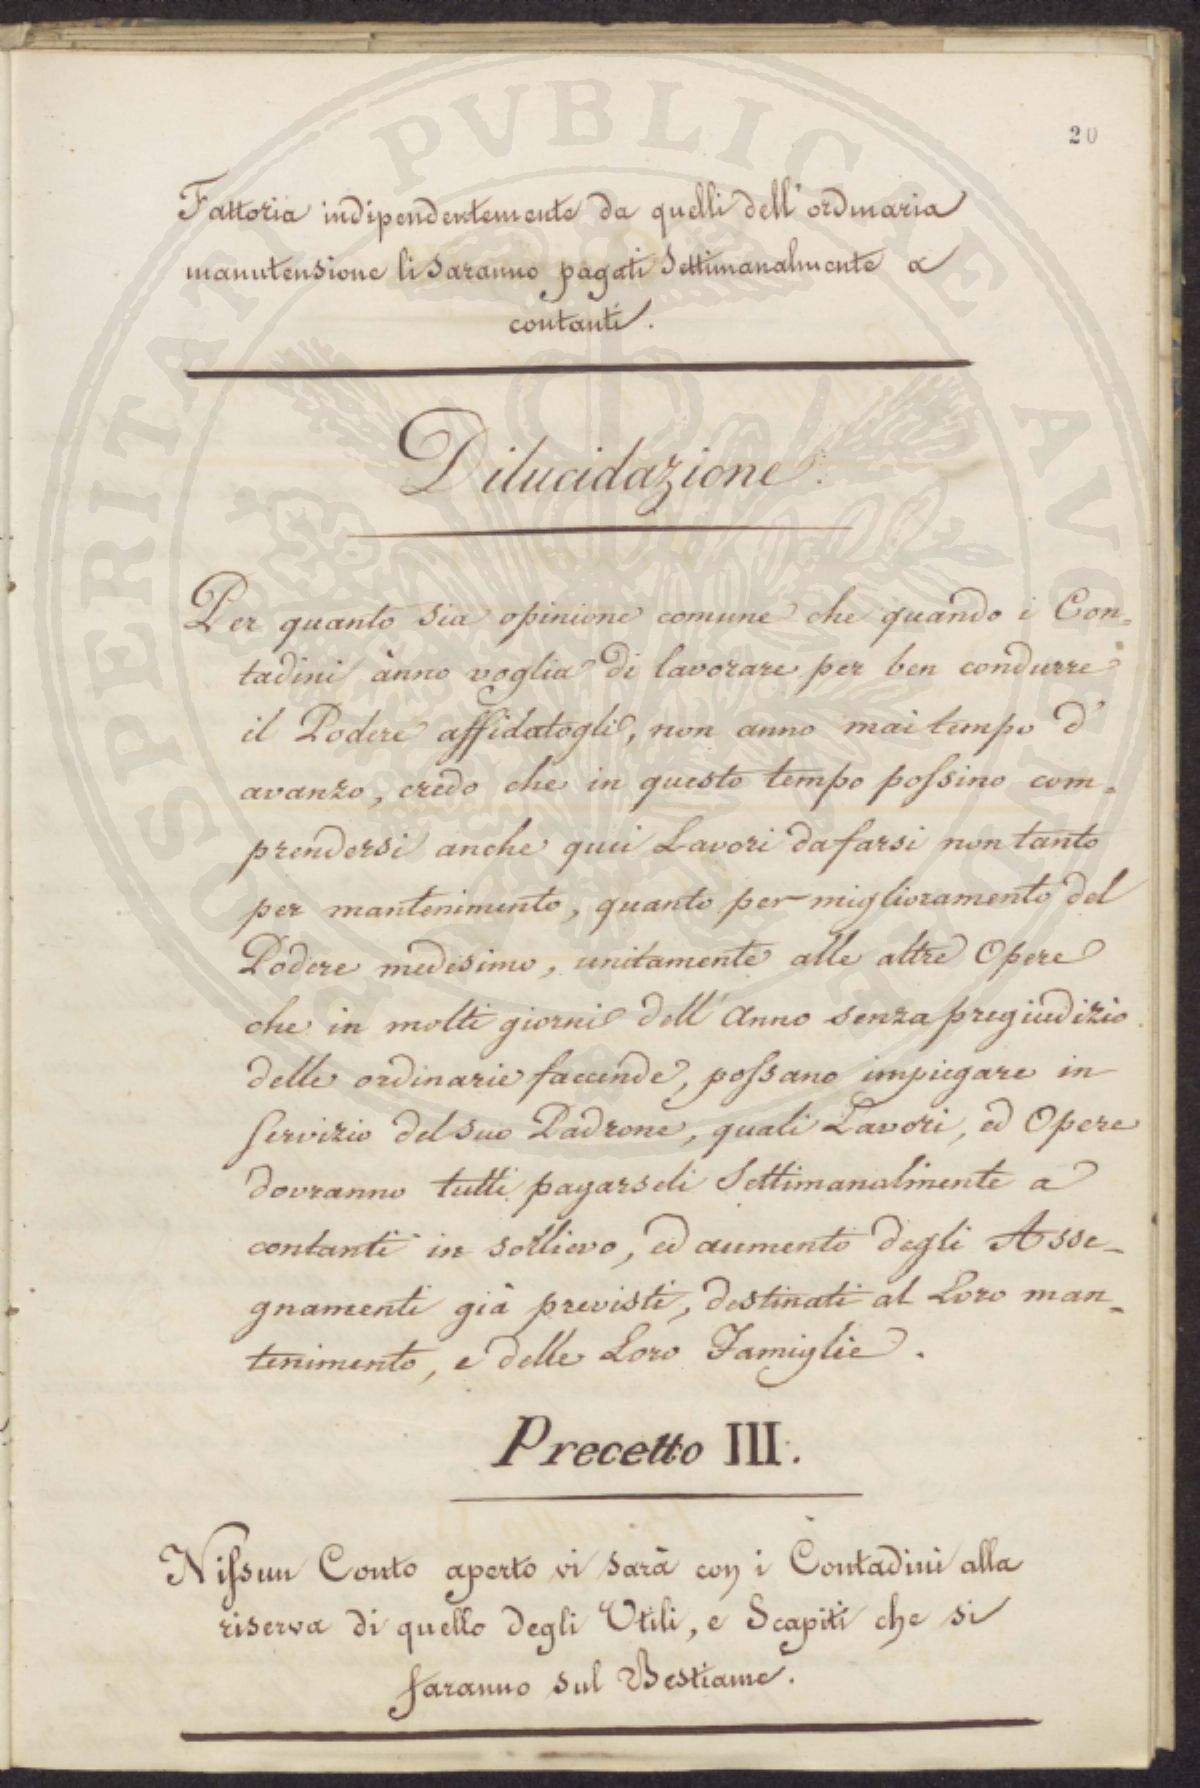 20
Fattoria indipendentemente da quelli dell'ordinaria
manutensione li saranno pagati Settimanalmente a
contanti.
Dilucidazione.
Per quanto sia opinione comune che quando i Con=
tadini ànno voglia di lavorare per ben condurre
il Podere affidatogli, non anno mai tempo d'
avanzo, credo che in questo tempo possino com=
prendersi anche quei Lavori da farsi non tanto
per mantenimento, quanto per miglioramento del
Podere medesimo, unitamente alle altre Opere
che in molti giorni dell'Anno senza pregiudizio
delle ordinarie faccende, possano impiegare in
Servizio del suo Padrone, quali Lavori, ed Opere
dovranno tutti pagarseli Settimanalmente a
contanti in sollievo, ed aumento degli Asse=
gnamenti già previsti, destinati al Loro man=
tenimento, e delle Loro Famiglie.
Precetto III.
Nissun Conto aperto vi sarà con i Contadini alla
riserva di quello degli Utili, e Scapiti che si
faranno sul Bestiame.
PROSPERITATI PVBLICAE AVGENDAE